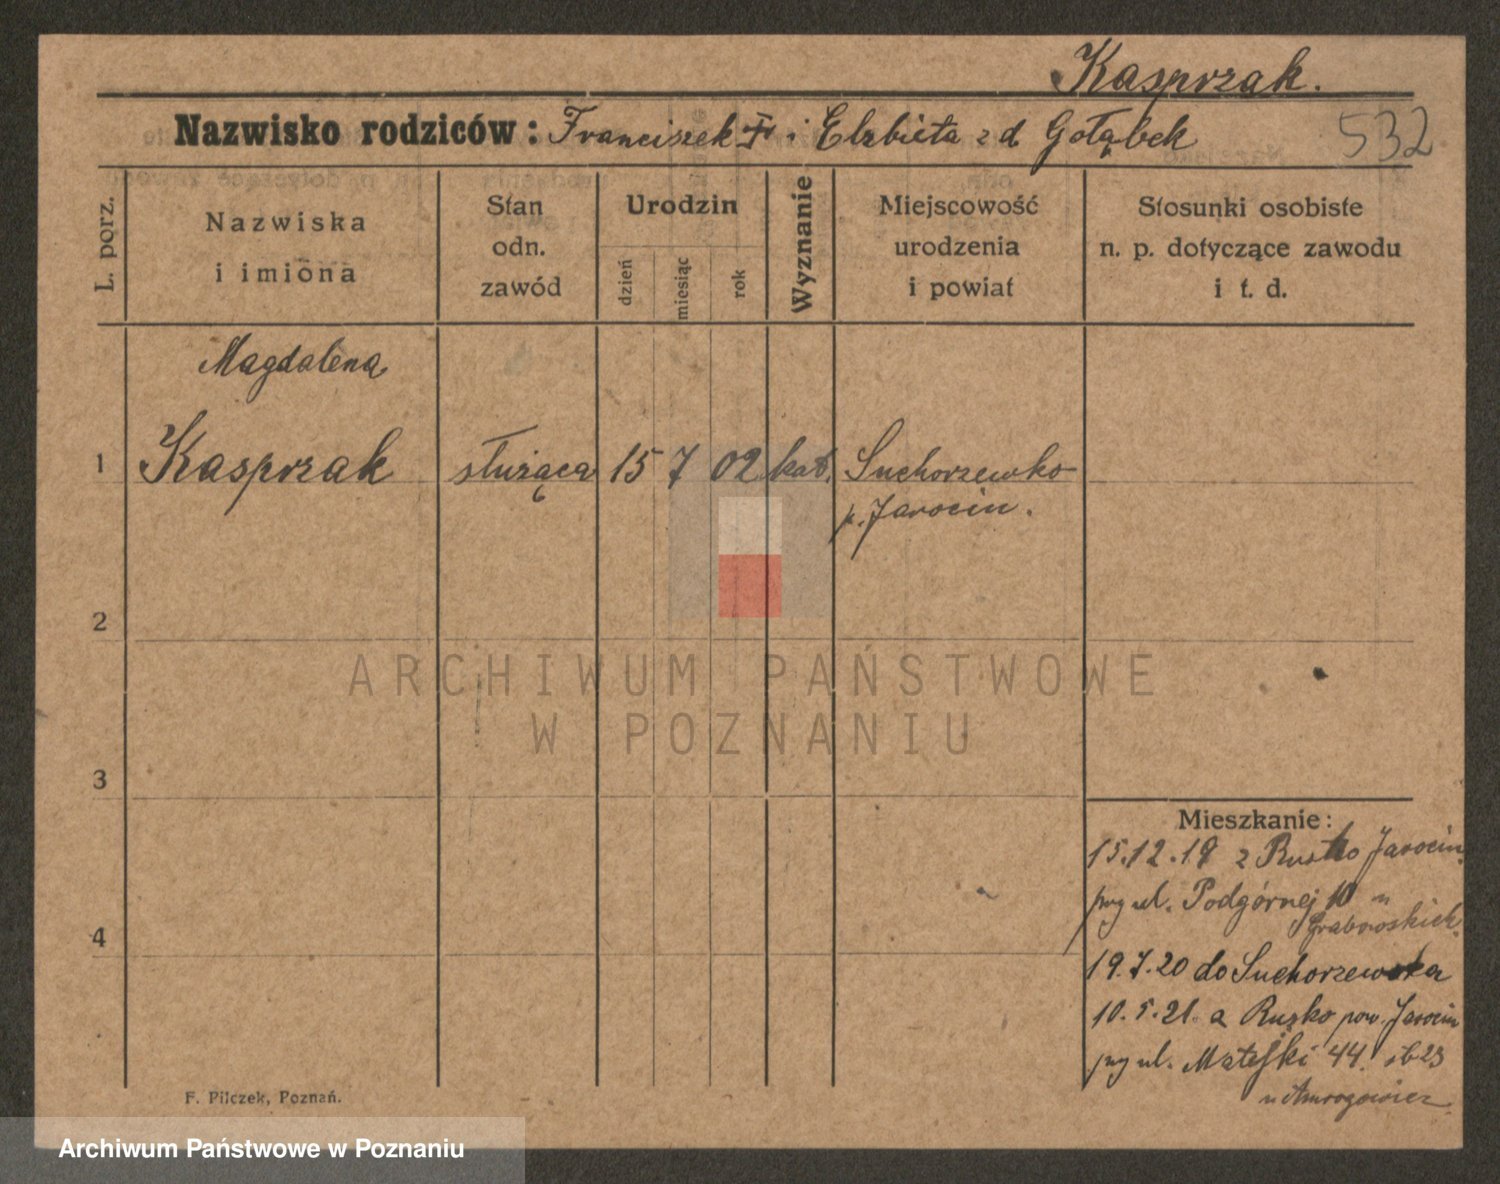 Kasprzak.
Nazwisko rodziców: Franciszek i Elzbieta z d Gołąbek
532
L. porz.
Nazwiska
i imiona
Stan
odn.
zawód
Urodzin
dzień
miesiąc
rok
Wyznanie
Miejscowość
urodzenia
i powiat
Stosunki osobiste
n. p. dotyczące zawodu
i t. d.
Magdalena
1 Kasprzak służąca 15 7 02 kat. Suchorzewko
p. Jarocin.
2
ARCHIWUM PAŃSTWOWE
W POZNANIU
3
Mieszkanie:
15.12.19 z Rusko Jarocin
przy ul. Podgórnej 10 u
Grabowskich.
4
19.7.20 do Suchorzewka
10.5.21. a Rusko pow. Jarocin
przy ul. Matejki 44
u
F. Pilczek, Poznań.
Archiwum Państwowe w Poznaniu